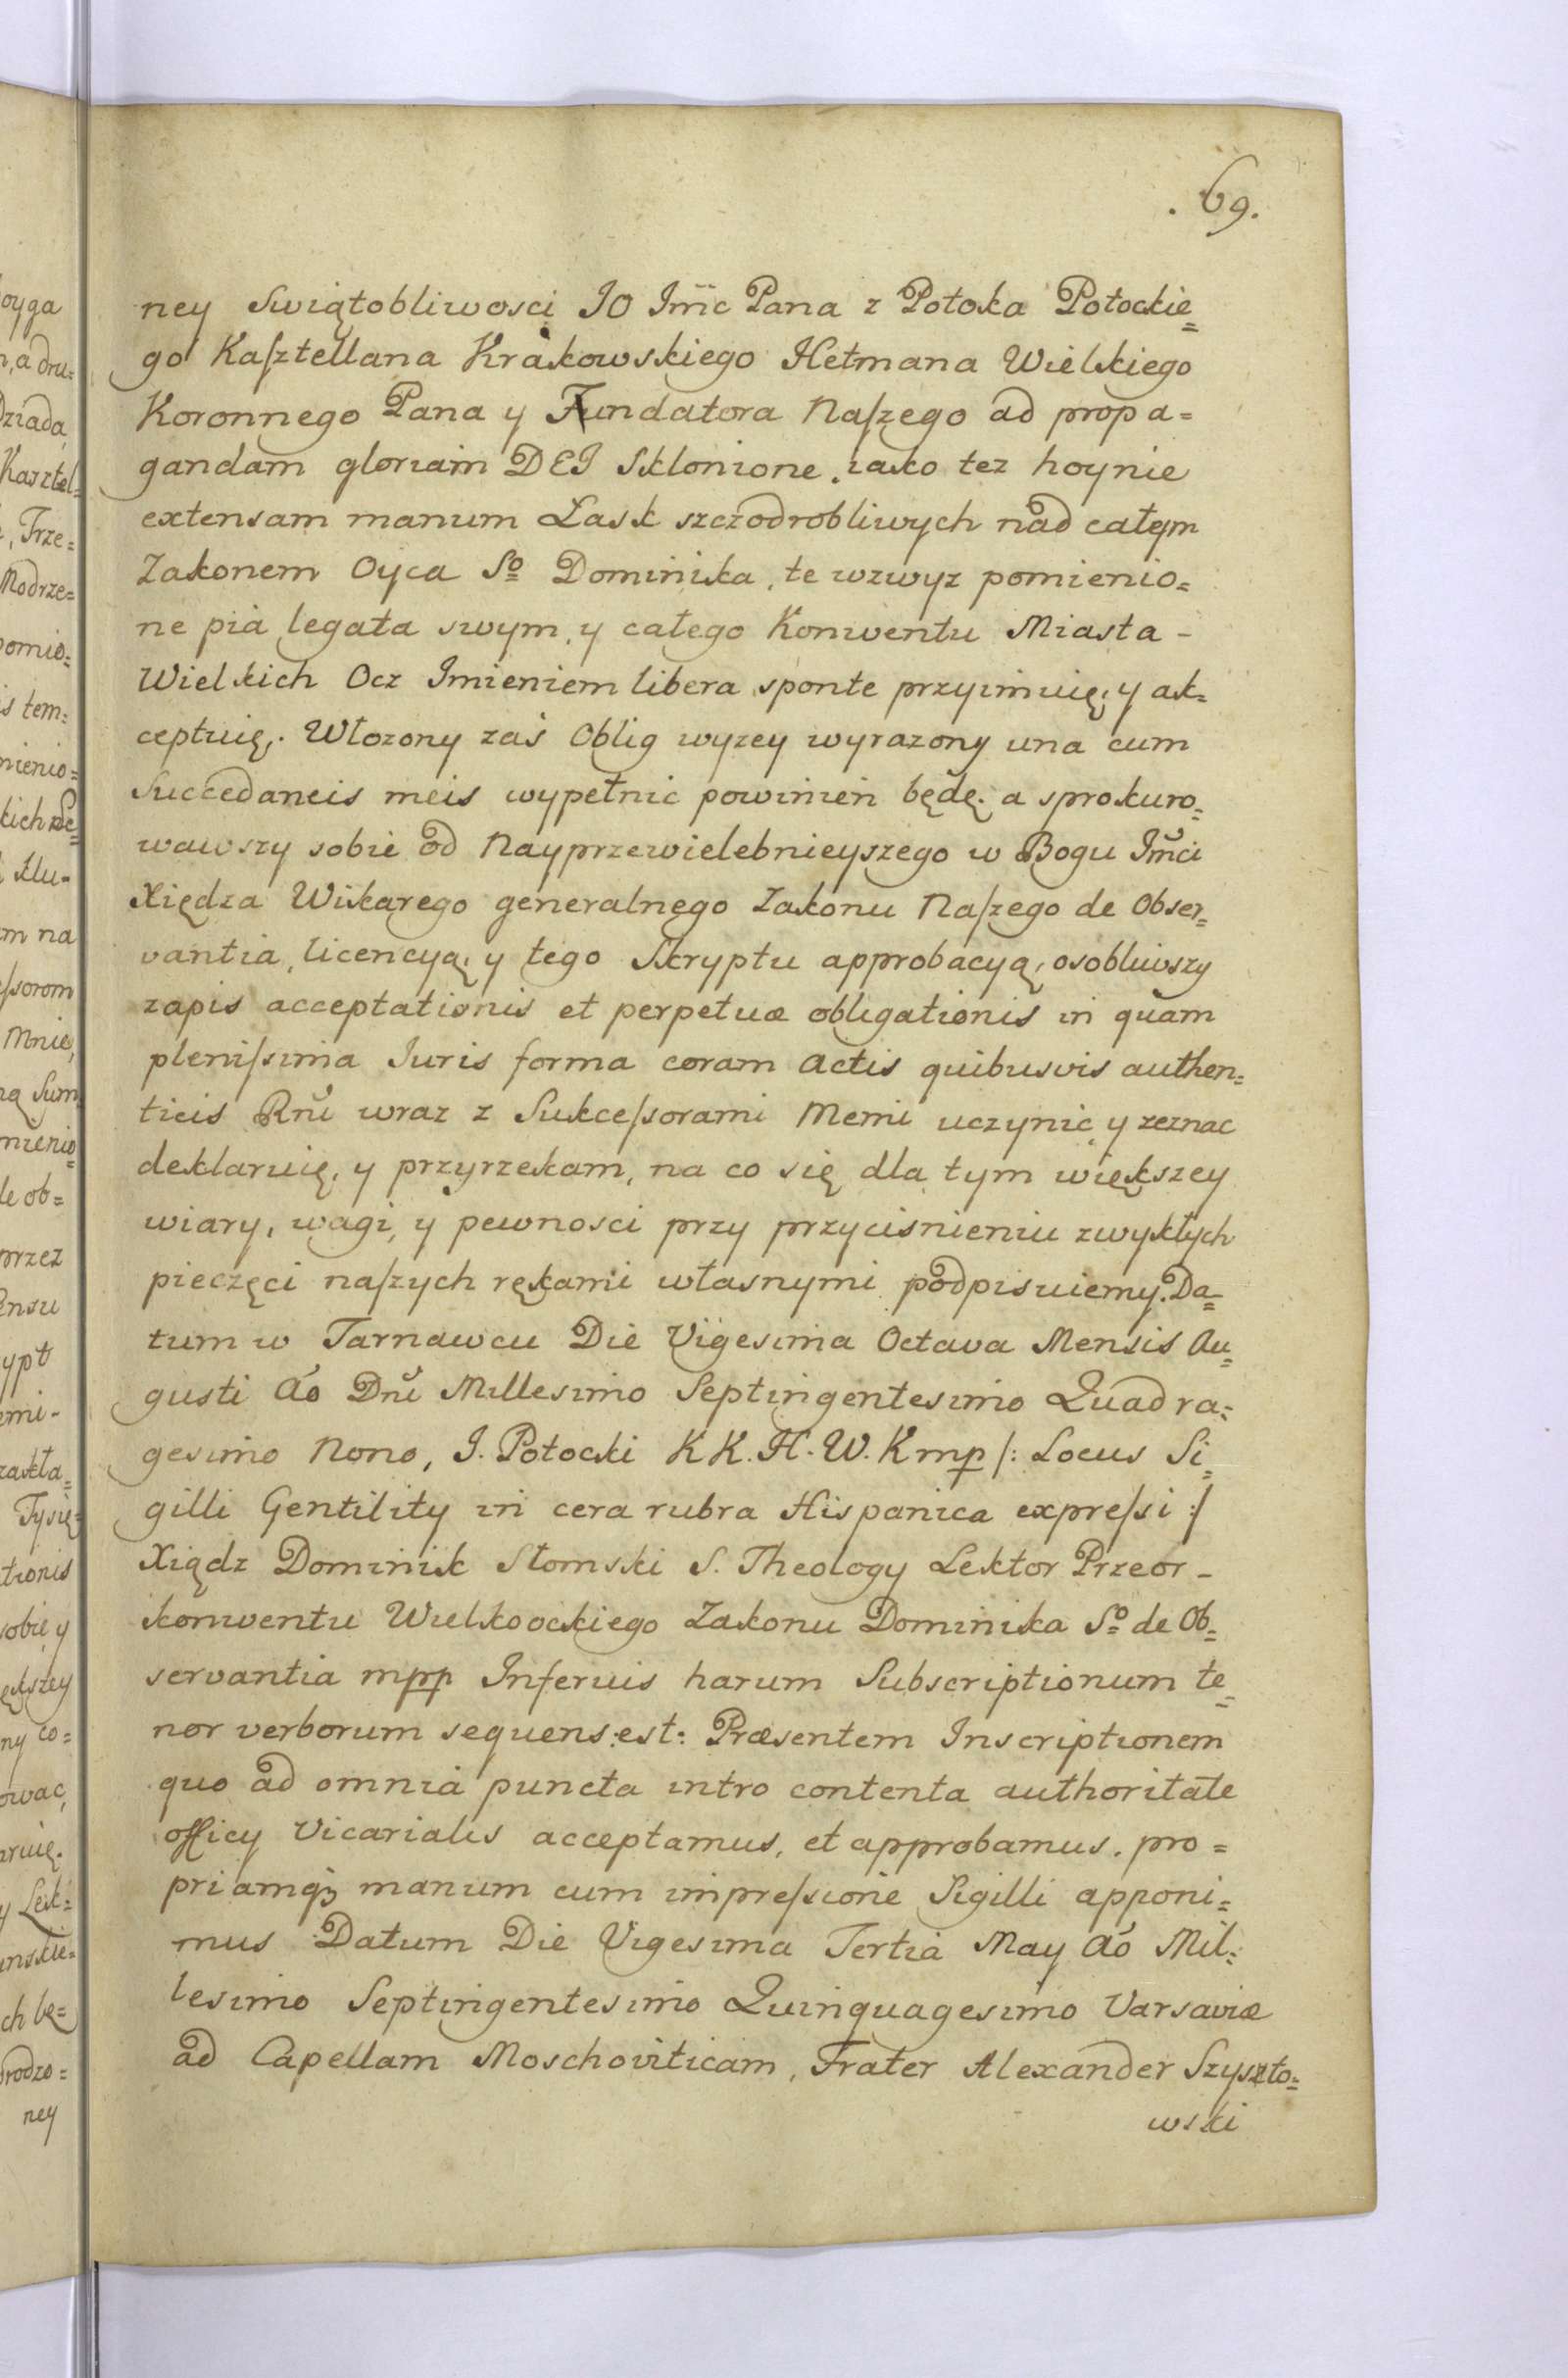 . 69.
ney Swiątobliwosci JO Jmc Pana z Potoka Potockie=
go Kaſztellana Krakowskiego Hetmana Wielkiego
Koronnego Pana y Fundatora Naſzego ad propa=
gandam gloriam DEI Sklonione. iako tez hoynie
extensam manum Łask szczodrobliwych nad całym
Zakonem Oyca So Dominika, te wzwyz pomienio=
ne pia legata swym, y całego Konwentu Miasta -
Wielkich Ocz Imieniem libera sponte przyimuię, y ak=
ceptuię. Włozony zaś Oblig wyzey wyrazony una cum
Succedaneis meis wypełnic powinien będę. a sprokuro=
wawszy sobie od Nayprzewielebnieyszego w Bogu Jmci
Xiędza Wikarego generalnego Zakonu Naſzego de Obser=
vantia, licencyą, y tego Skryptu approbacyą, osobliwszy
zapis acceptationis et perpetuæ obligationis in quam
pleniſsima Iuris forma coram Actis quibusvis authen=
ticis Rni wraz z Sukceſsorami Memi uczynic y zeznac
deklaruię, y przyrzekam, na co się dla tym większey
wiary, wagi, y pewnosci przy przyciśnieniu zwykłych
pieczęci naſzych rękami własnymi podpisuiemy. Da=
tum w Tarnawcu Die Vigesima Octava Mensis Au=
gusti Ao Dni Millesimo Septingentesimo Quadra=
gesimo Nono, J. Potocki KK. H. W. K mp /: Locus Si=
gilli Gentility in cera rubra Hispanica expreſsi :/
Xiądz Dominik Słomski S. Theology Lektor Przeor -
konwentu Wielkoockiego Zakonu Dominika So de Ob=
servantia mpp Inferius harum Subscriptionum te=
nor verborum sequens est: Præsentem Inscriptionem
quo ad omnia puncta intro contenta authoritate
officy Vicarialis acceptamus, et approbamus. pro=
priamq₃ manum cum impreſsione Sigilli apponi=
mus Datum Die Vigesima Tertia May Ao Mil=
lesimo Septingentesimo Quinquagesimo Varsaviæ
ad Capellam Moschoviticam, Frater Alexander Szyszto=
wski
oyga
, a dru=
Dziada,
Kasztel=
, Trze=
Modrze=
pomio=
is tem=
mienio=
klu=
m na
eſsorom
Mnie,
ną Sum
mienio=
le ob=
przez
ensu
ypt
emi-
zakła=
Tysię=
tionis
sobie y
ększey
ny co=
owac,
aruię.
y Lek=
ch be=
rodzo=
ney